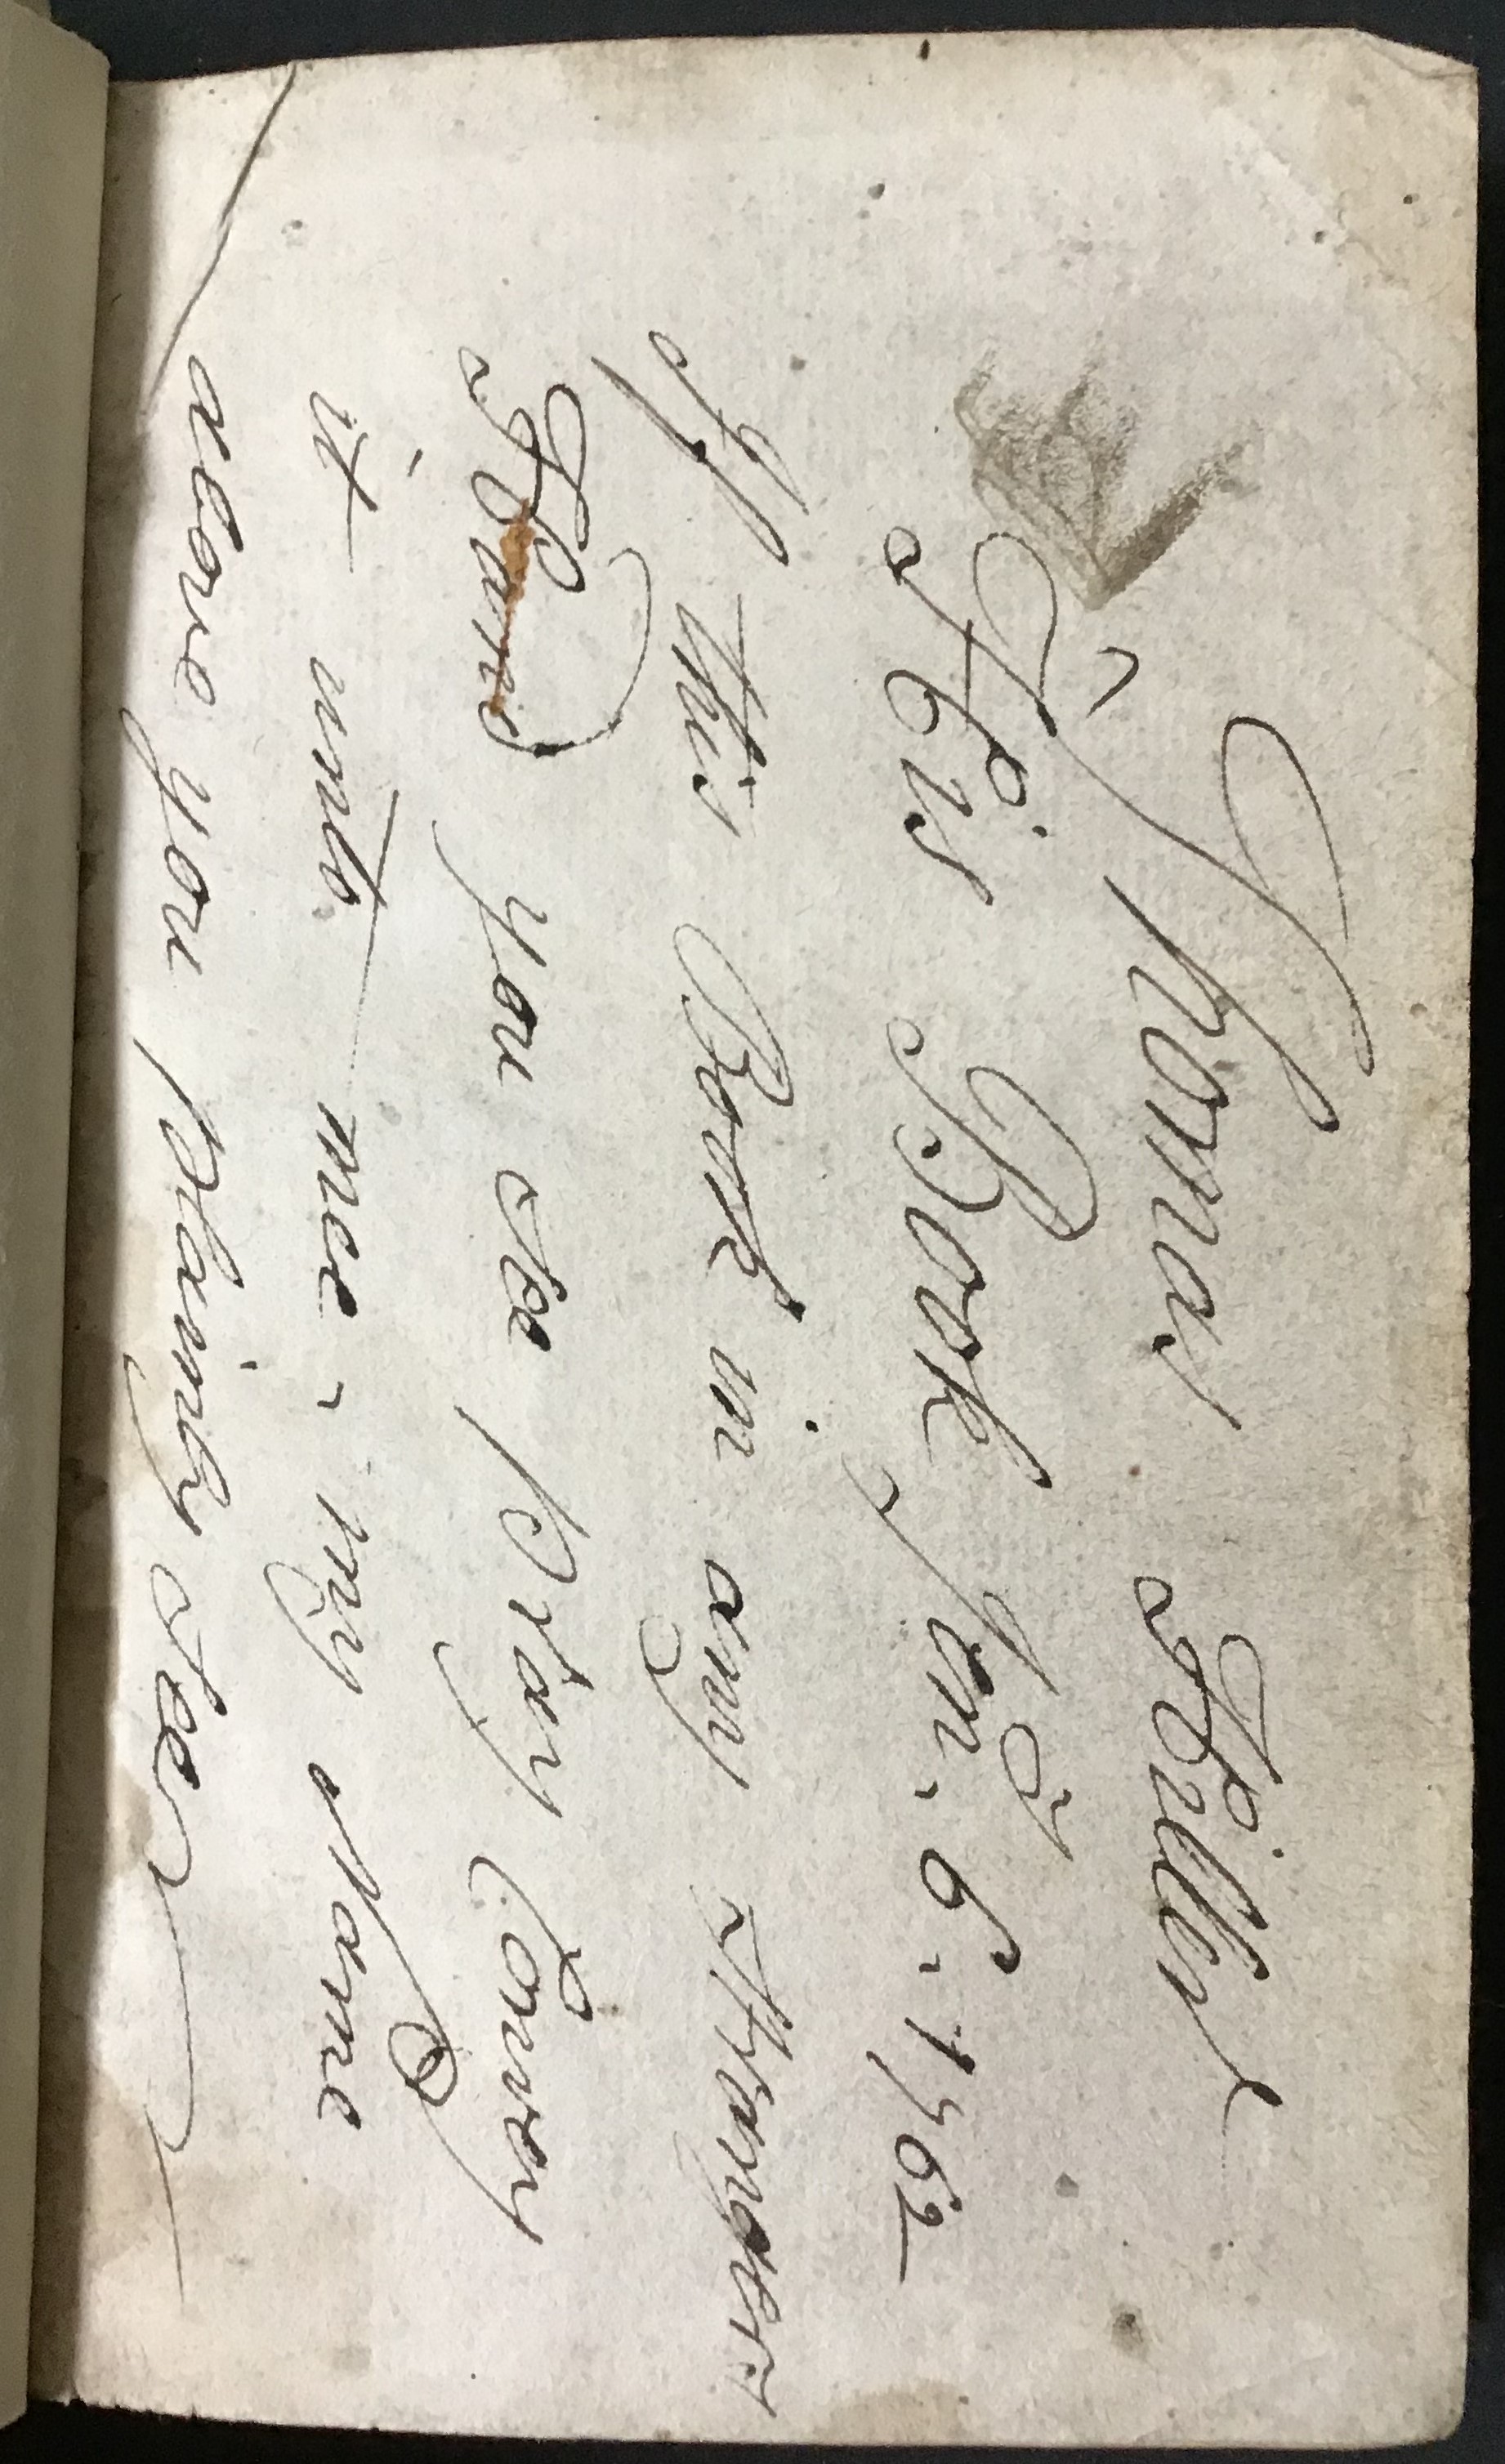 Thomas Hilles
His Book Jany. 6. 1762
If this Book in any Strangers
Hand you See Pray Convey
it unto mee. my Name
above you Plainly See